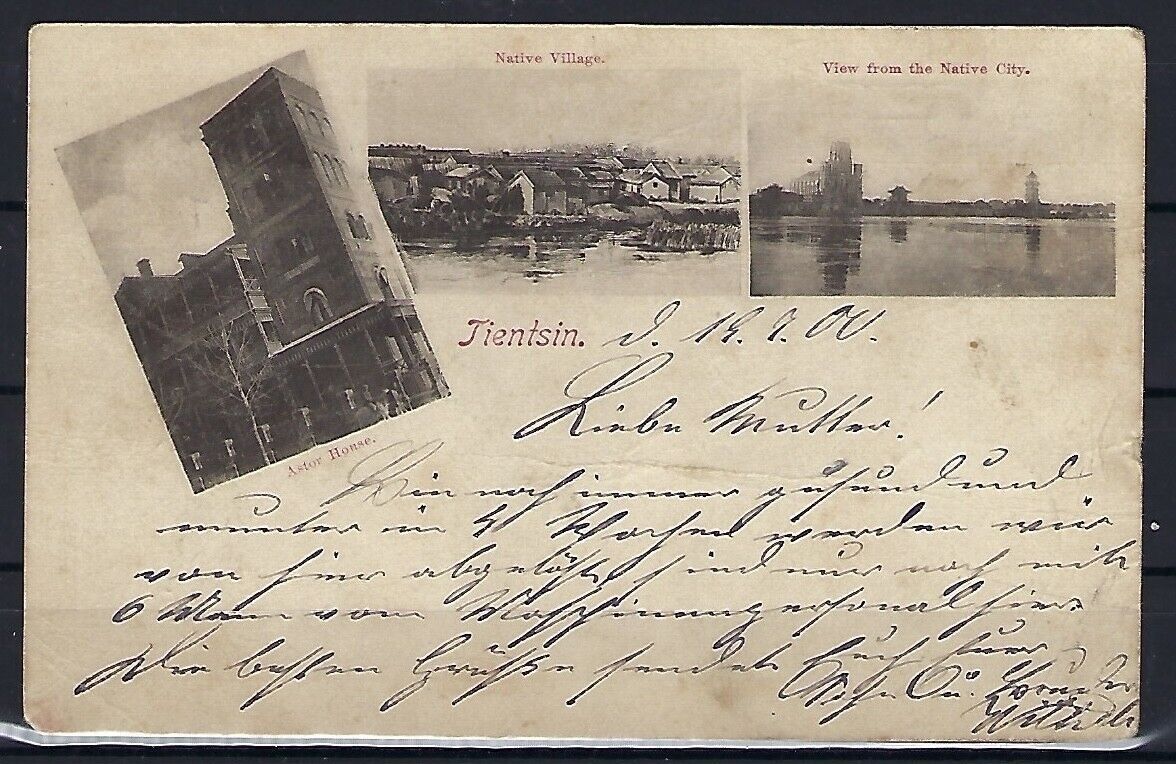 Native Village.
View from the Native City.
Astor House.
Tientsin. d. 19.7.04.
Liebe Mutter!
Bin noch immer gesund und
munter in 4 Wochen werden wir
von hier abgelöst sind nur noch mit
6 Mann vom Maschinenpersonal hier.
Die besten Grüße sendet Euch Euer
Sohn u. Bruder
Wilhelm